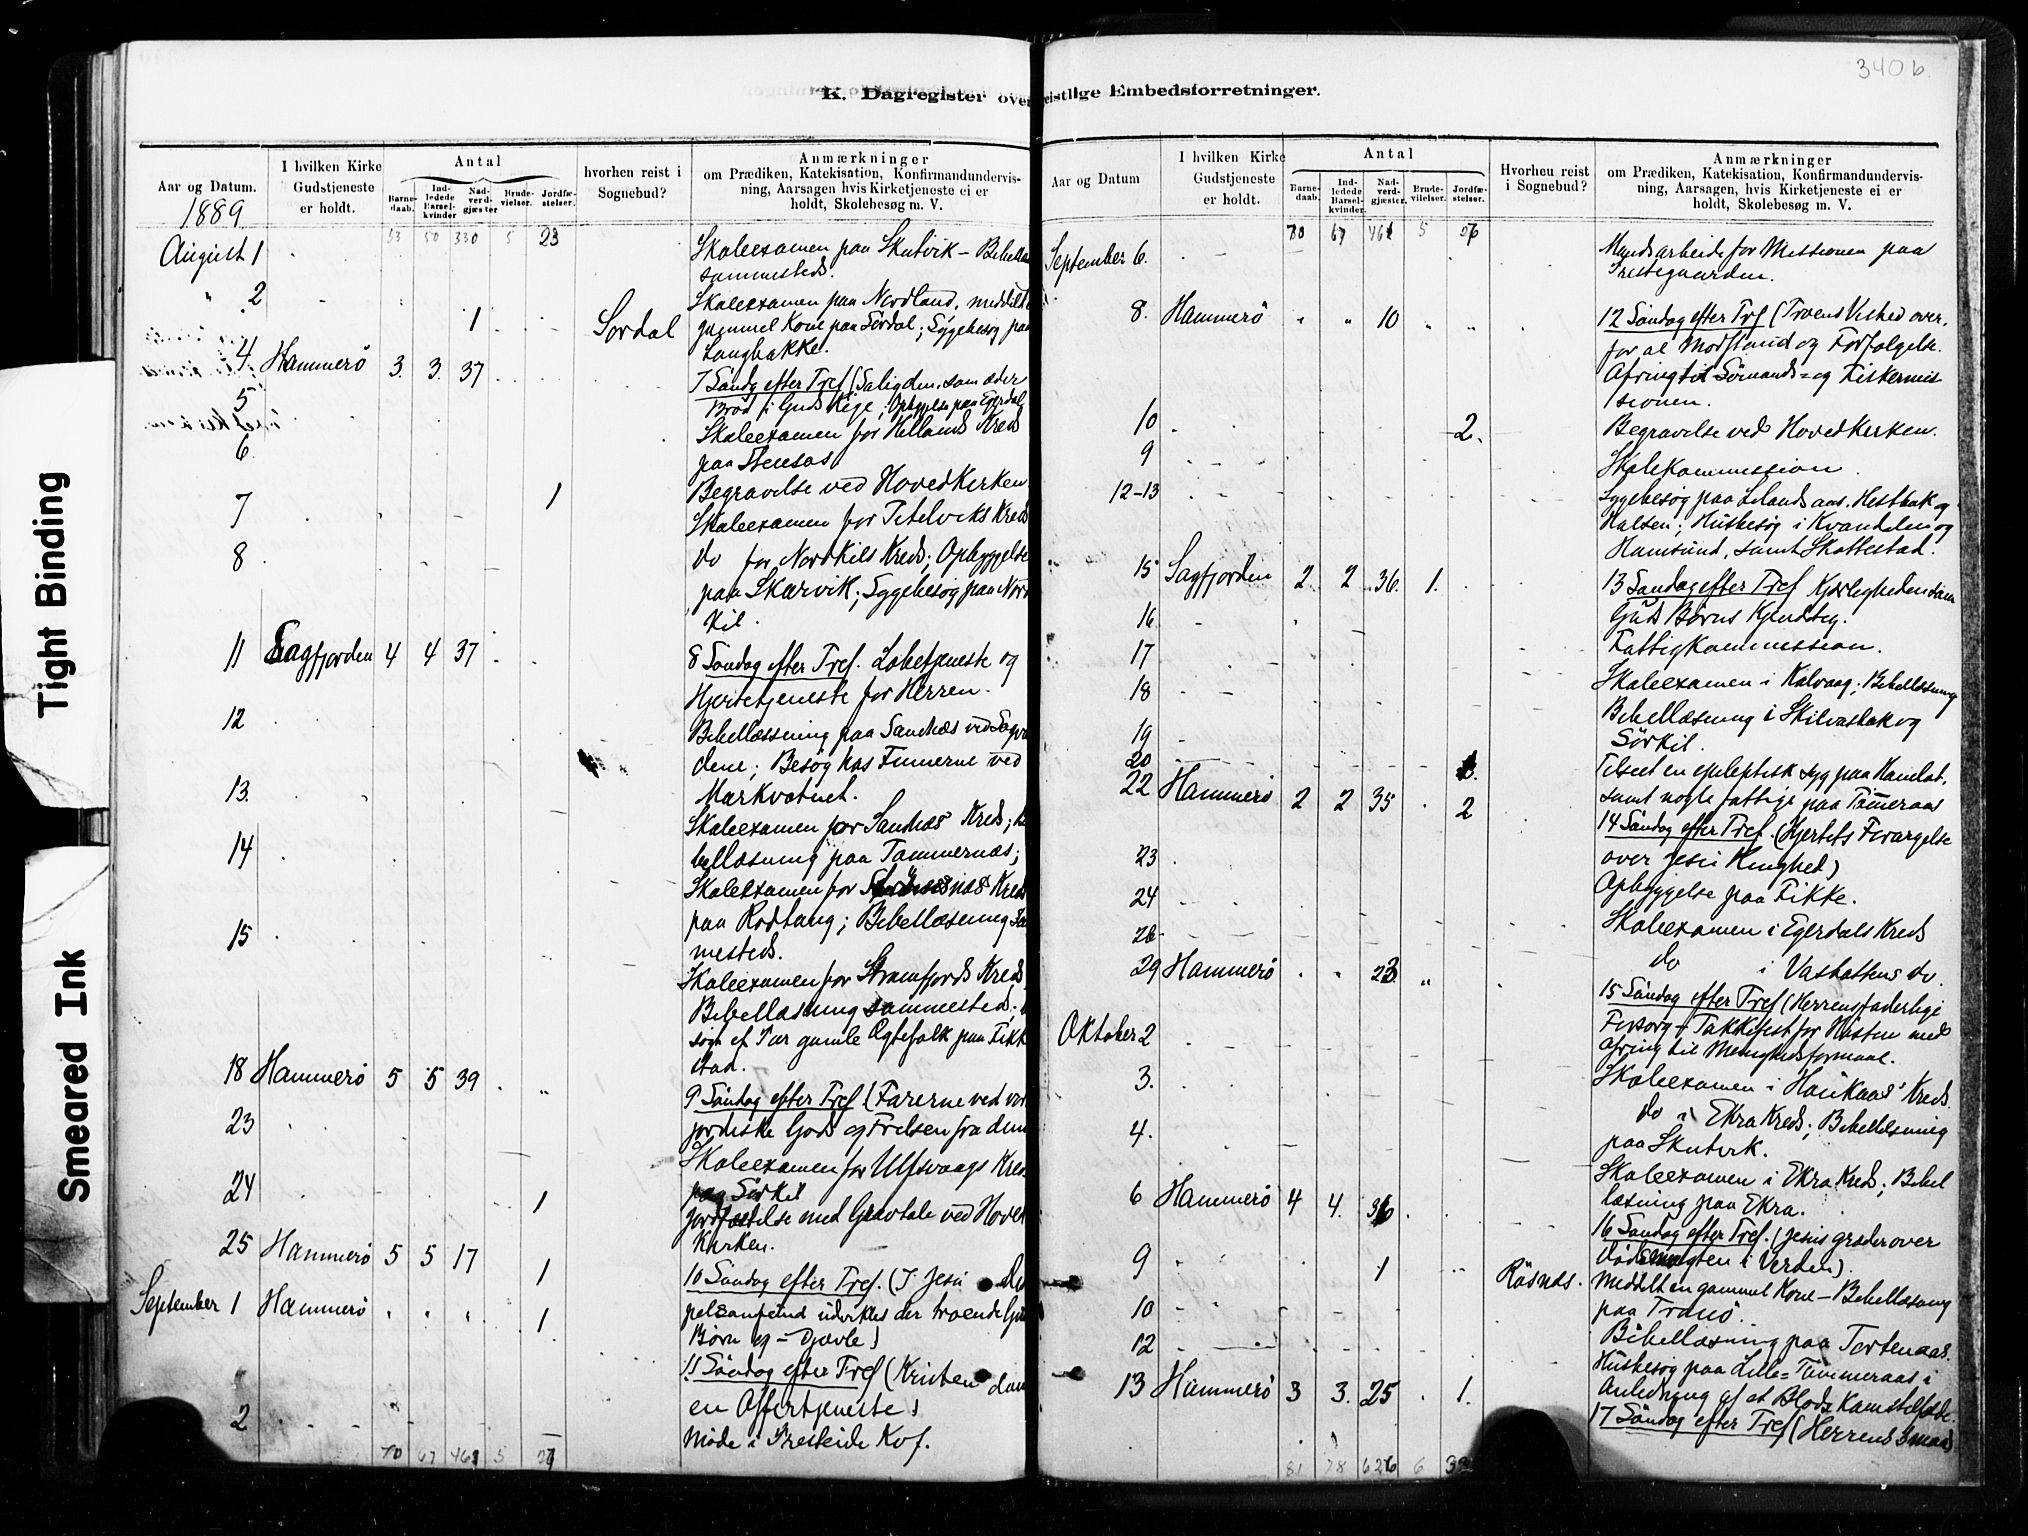 340 b.
K. Dagregister over
Aar og Datum.
1889.
I hvilken Kirke
Gudstjeneste
er holdt.
Antal
Barne-
daab.
Ind-
ledede
Barsel-
kvinder
Nad-
verd-
gjæster
Brude-
vielser.
Jordfæ-
stelser.
hvorhen reist i
Sognebud?
Anmærkninger
om Prædiken, Katekisation, Konfirmandundervis-
ning, Aarsagen hvis Kirketjeneste ei er
holdt, Skolebesøg m. V.
53 50 330 5 23
August 1 Skoleexamen paa Skutvik – Bibellæs
sammesteds.
" 2 Skoleexamen paa Nordland, meddelt
1 Sordal gammel Kone paa Sordal; Sygebesøg paa
Langbakke.
4 Hammerö 3. 3. 37 7 Søndg efter Tref (Salig den, som æder
Brød i Guds Rige; Opbyggelse paa Egerdal
5 Skoleexamen for Hellands Kreds
6. paa Stensos
Begravelse ved Hovedkirken 1
7 Skoleexamen for Kreds
8 do for Nordkils Kreds; Opbyggelse
paa Skarvik; Sygebesøg paa Nord
kil.
11 Sagfjorden 4 4 37 8 Søndag efter Tref. Løbetjeneste og
Hjertetjeneste for Herren.
12 Bibellæsning paa Sandnæs ved Sagva
dene; Besøg hos Finnerne ved
13. Markvatnet.
Skoleexamen for Sandnæs Kreds; Bi
14 bellæsning paa Tømmernæs;
Skoleexamen for Kreds
paa Rodtang; Bibellæsning Sa
15 mesteds.
Skoleexamen for Kreds
Bibellæsning sammesteds;
søgt et Par gamle Ægtefolk paa Fikk
stad.
18 Hammerö 5 5 39 9 Søndag efter Tref (Farerne ved vort
jordiske Gods og Frelsen fra dem
23 Skoleexamen for Ulfsvaags Kreds
paa Sörkil
24 1 Jordfæstelse med Gravtale ved Hoved
Kirken.
25 Hammerö 5 5 17 1 10 Søndag efter Tref. (I Jesu
udvikles der troende Guds
Børn og – Djævle)
September 1 Hammerö " " " 1. 11 Søndag efter Tref (Kristen dom
en Offertjeneste)
2 Møde i Presteide Kof.
70 67 461 5 27
istlige Embedsforretninger.
Aar og Datum
I hvilken Kirke
Gudstjeneste
er holdt.
Antal
Barne-
daab.
Ind-
ledede
Barsel-
kvinder.
Nad-
verd-
gjæster.
Brude-
vielser.
Jordfæ-
stelser.
Hvorhen reist
i Sognebud?
Anmærkninger
om Prædiken, Katekisation, Konfirmandundervis-
ning, Aarsagen hvis Kirketjeneste ei er
holdt, Skolebesøg m. V.
70 67 461 5 26
September 6. Mandsarbeide for Missionen paa
Prestegaarden.
8. Hammerö " " 10 " " 12 Søndag efter Tref (Troens Vished over-
for al Modstand og Forfølgelse.
Ofring til Sömands- og Fiskermis-
sionen.
10 2. Begravelse ved Hovedkirken.
9 Skolekommission.
12-13 Sygebesøg paa Lilandsaas, Hestbak og
Kalsen; Husbesøg i Kvandalen og
Hamsund, samt Skottestad.
15 Sagfjorden 2 2 36. 1. 13 Søndag efter Tref Kjærligheden som
Guds Børns Kjendeteg.
16 Fattigkommission.
17
18 Skoleexamen i Kalvaag; Bibellæsning
Bibellæsning i Skilvasbak og
19 Sörkil.
20 Tilseet en epileptisk Syg paa
22 Hammerö 2 2 35 2 samt nogle fattige paa Tömeraas
14 Søndag efter Tref. (Hjertets Forargelse
over Jesu Ringhed)
23 Opbyggelse paa Fikke.
24 Skoleexamen i Egerdals Kreds
26 do i do.
29 Hammerö " " 23 " 15 Søndag efter Tref (Herrens faderlige
Forsorg – Takkefest for Høsten med
Ofring til Menighedsformaal.
Oktober 2 Skoleexamen i Haukaas' Kreds.
3. do i Ekra Kreds; Bibellæsning
paa Skutvik.
4. Skoleexamen i Ekra Kreds; Bibel
læsning paa Ekra.
6 Hammerö 4 4. 36 16 Søndag efter Tref. (Jesus græder over
Dødsmagten i Verden).
9 1 Røsnes. Meddelt en gammel Kone – Bibellæsning
10 paa Tranö.
12 Bibellæsning paa Tortenaas.
Husbesøg paa Lille-Tömmeraas i
Anledning af et Blodskamstilfælde.
13 Hammerö 3 3. 25 1. 17 Søndag efter Tref (Herrens smaa
81 78 626 6 32
Tight Binding
Smeared Ink